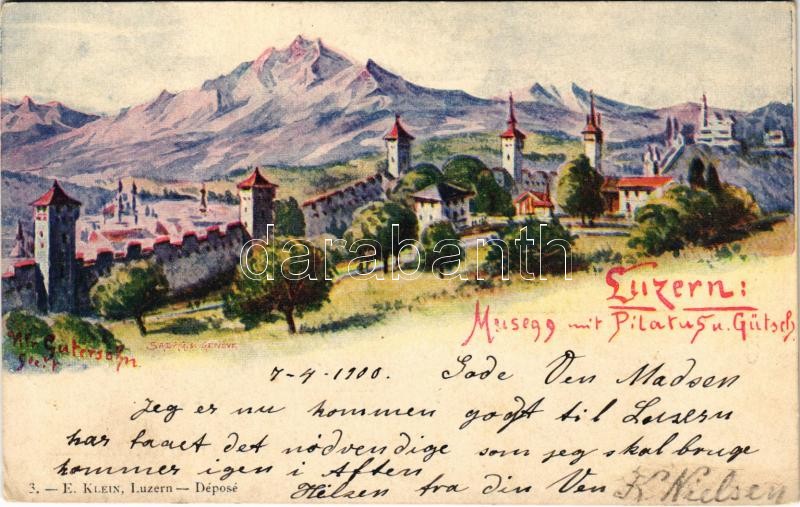 darabanth
Luzern:
Musegg mit Pilatus u. Gütsch.
Gutersohn
SADAG. S. GENÈVE.
7-4-1900. Gode Ven Madsen
Jeg er nu kommen godt til Luzern
har taget det nödvendige som jeg skal bruge
kommer igen i Aften
3. — E. KLEIN, Luzern — Déposé
Hilsen fra din Ven K Nielsen